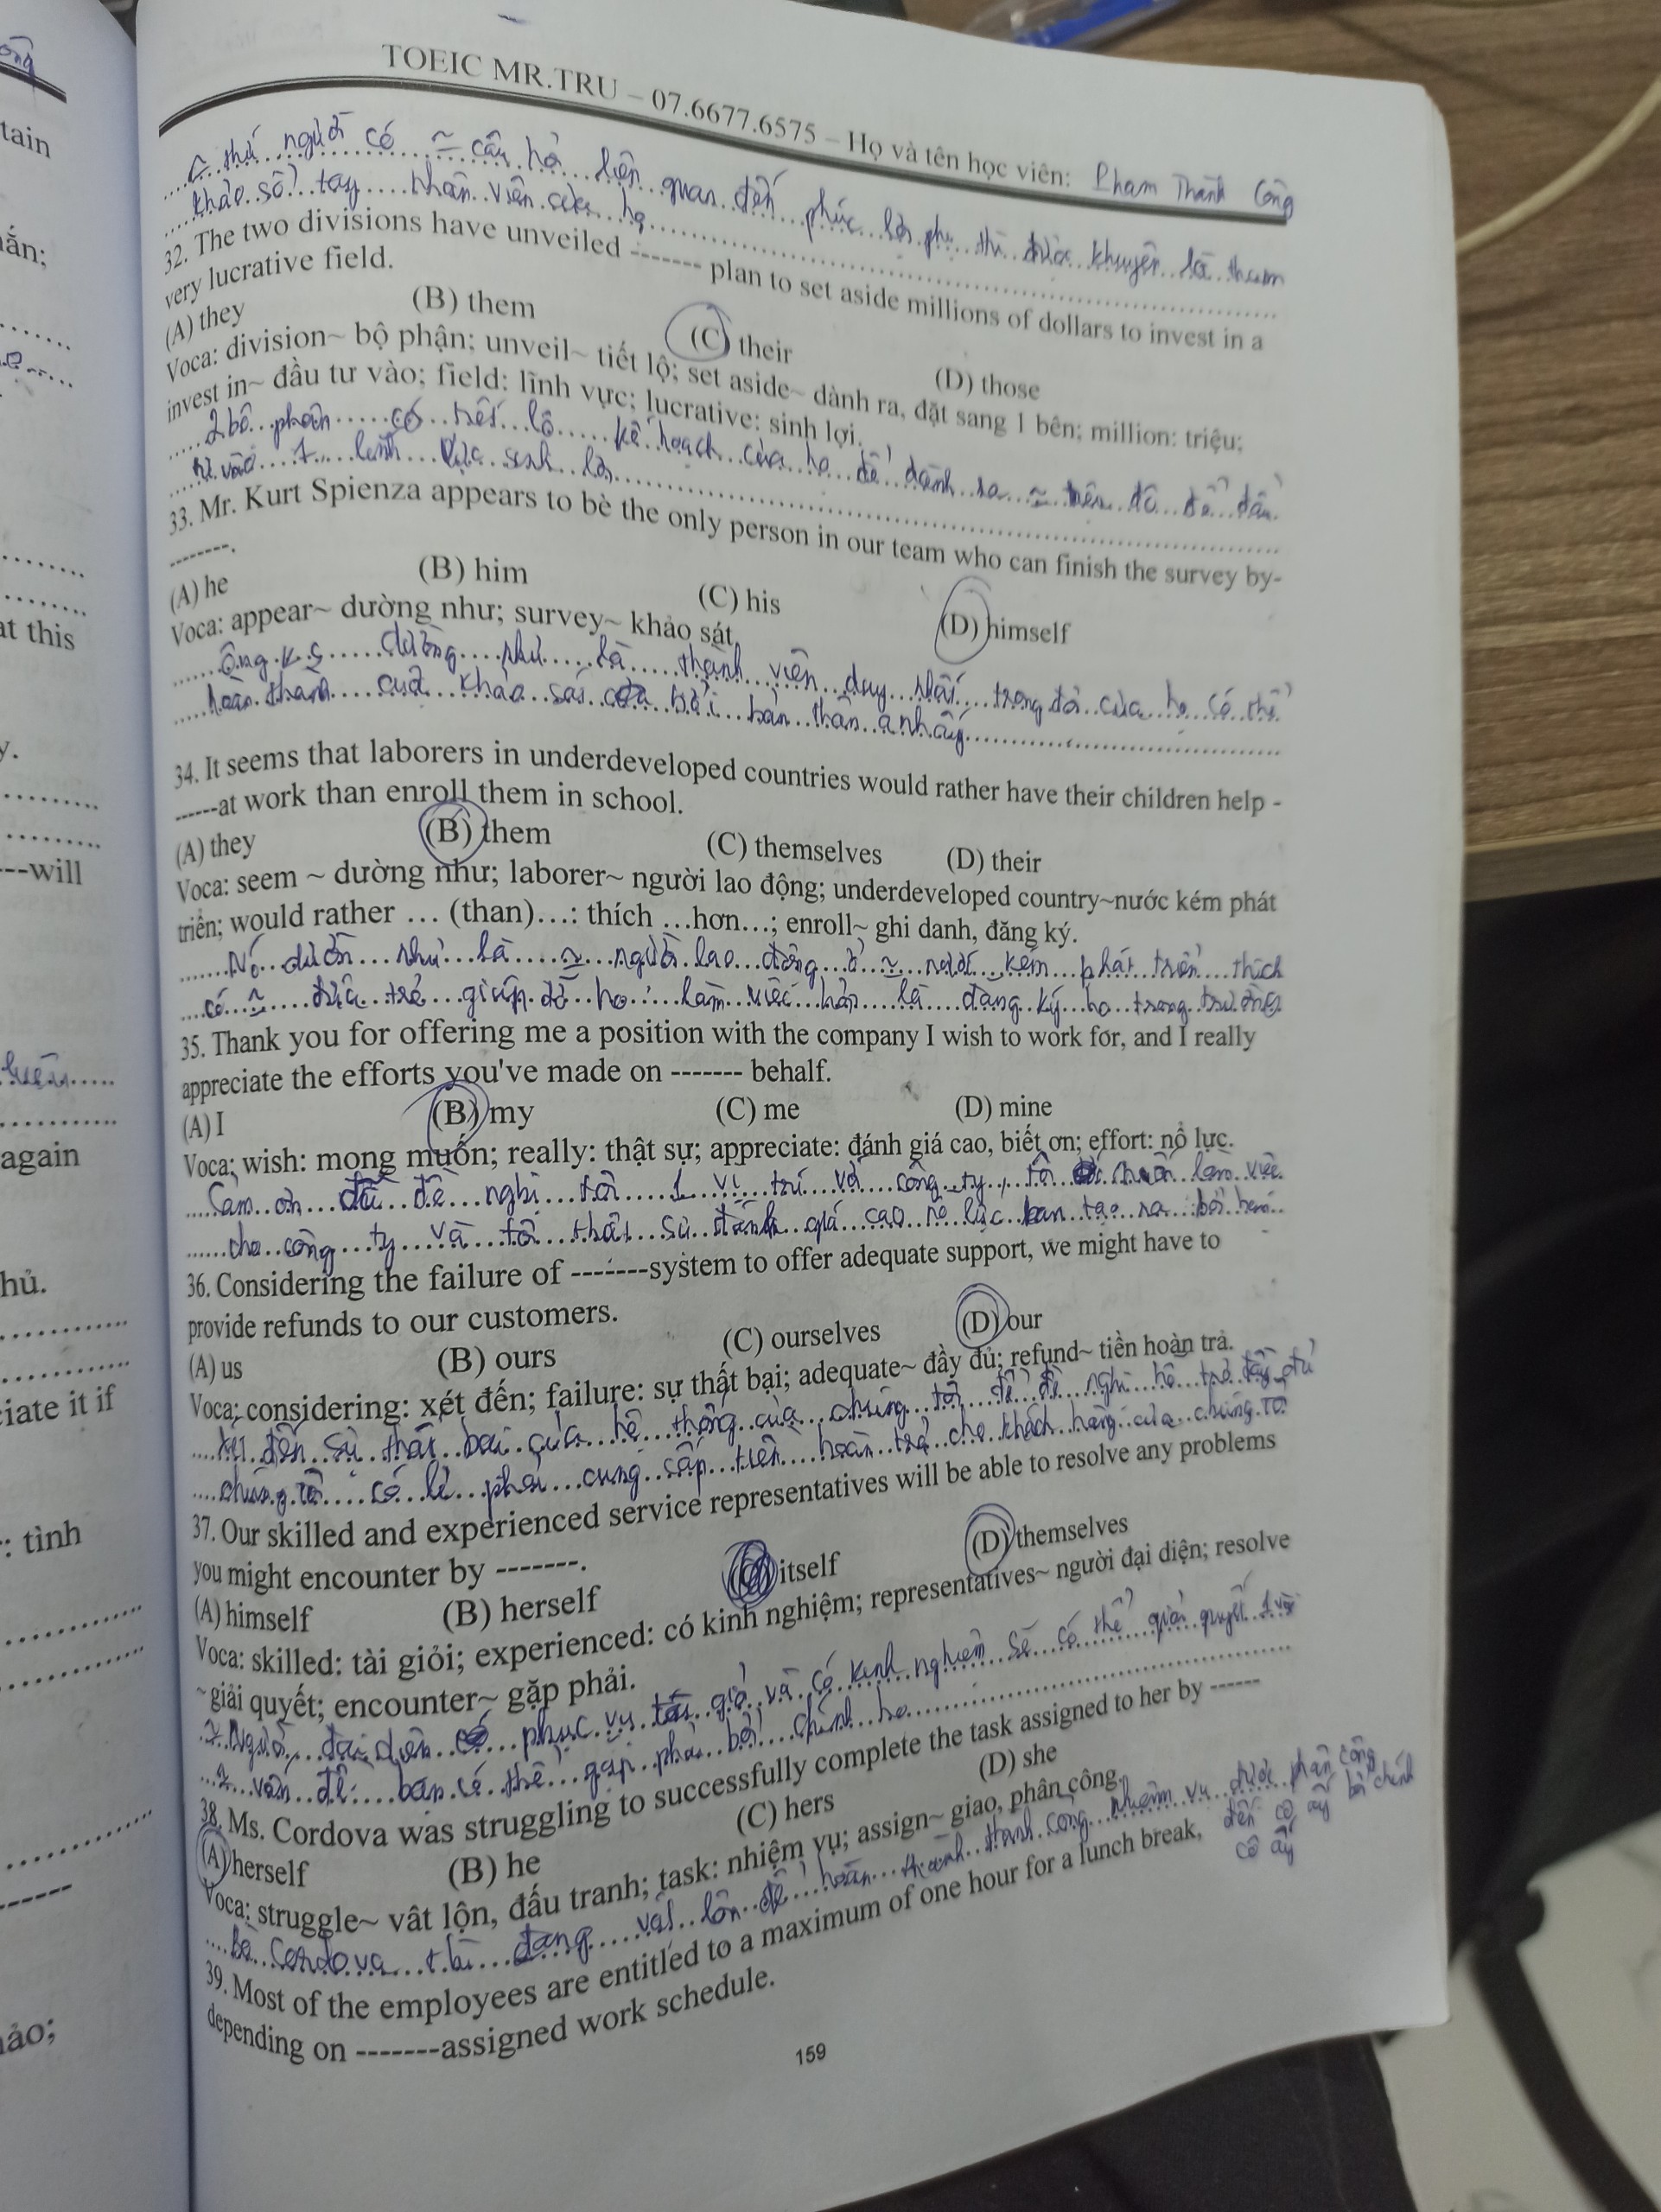 ông
tain
ắn;
y.
at this
---will
again
hủ.
iate it if
: tình
ảo;
TOEIC MR.TRU – 07.6677.6575 – Họ và tên học viên: Phạm Thành Công
thứ người có ~ câu hỏi liên quan đến phúc lợi phụ thì được khuyên là tham
khảo sổ tay nhân viên của họ
32. The two divisions have unveiled ------- plan to set aside millions of dollars to invest in a
very lucrative field.
(A) they (B) them (C) their (D) those
Voca: division~ bộ phận; unveil~ tiết lộ; set aside~ dành ra, đặt sang 1 bên; million: triệu;
invest in~ đầu tư vào; field: lĩnh vực; lucrative: sinh lợi.
2 bộ phận có tiết lộ kế hoạch của họ để dành ra ~ triệu đô để đầu
tư vào 1 lĩnh vực sinh lợi
33. Mr. Kurt Spienza appears to bè the only person in our team who can finish the survey by-
-------.
(A) he (B) him (C) his (D) himself
Voca: appear~ dường như; survey~ khảo sát.
ông K.S dường như là thành viên duy nhất trong đội của họ có thể
hoàn thành cuộc khảo sát bởi bản thân anh ấy
34. It seems that laborers in underdeveloped countries would rather have their children help -
------at work than enroll them in school.
(A) they (B) them (C) themselves (D) their
Voca: seem ~ dường như; laborer~ người lao động; underdeveloped country~nước kém phát
triển; would rather … (than)…: thích …hơn…; enroll~ ghi danh, đăng ký.
Nó dườn như là ~ người lao động ở ~ nước kém phát triển thích
có ~ đứa trẻ giúp đỡ họ làm việc hơn là đăng ký họ trong trường
35. Thank you for offering me a position with the company I wish to work for, and I really
appreciate the efforts you've made on ------- behalf.
(A) I (B) my (C) me (D) mine
Voca: wish: mong muốn; really: thật sự; appreciate: đánh giá cao, biết ơn; effort: nỗ lực.
Cảm ơn đề nghị tôi 1 vị trí với công ty, tôi muốn làm việc
cho công ty và tôi thật sự đánh giá cao nỗ lực bạn tạo ra bởi
36. Considering the failure of -------system to offer adequate support, we might have to
provide refunds to our customers.
(A) us (B) ours (C) ourselves (D) our
Voca: considering: xét đến; failure: sự thất bại; adequate~ đầy đủ; refund~ tiền hoàn trả.
xét đến sự thất bại của hệ thống của chúng tôi để đề nghị hỗ trợ đầy đủ
chúng tôi có lẽ phải cung cấp tiền hoàn trả cho khách hàng của chúng tôi
37. Our skilled and experienced service representatives will be able to resolve any problems
you might encounter by -------.
(A) himself (B) herself (C) itself (D) themselves
Voca: skilled: tài giỏi; experienced: có kinh nghiệm; representatives~ người đại diện; resolve
~ giải quyết; encounter~ gặp phải.
Người đại diện phục vụ tài giỏi và có kinh nghiệm sẽ có thể giải quyết
~ vấn đề bạn có thể gặp phải bởi chính họ
38. Ms. Cordova was struggling to successfully complete the task assigned to her by ------
(A) herself (B) he (C) hers (D) she
Voca: struggle~ vật lộn, đấu tranh; task: nhiệm vụ; assign~ giao, phân công.
Bà Cordova thì đang vật lộn để hoàn thành thành công nhiệm vụ được phân công
đến cô ấy bởi chính
cô ấy
39. Most of the employees are entitled to a maximum of one hour for a lunch break,
depending on -------assigned work schedule.
159